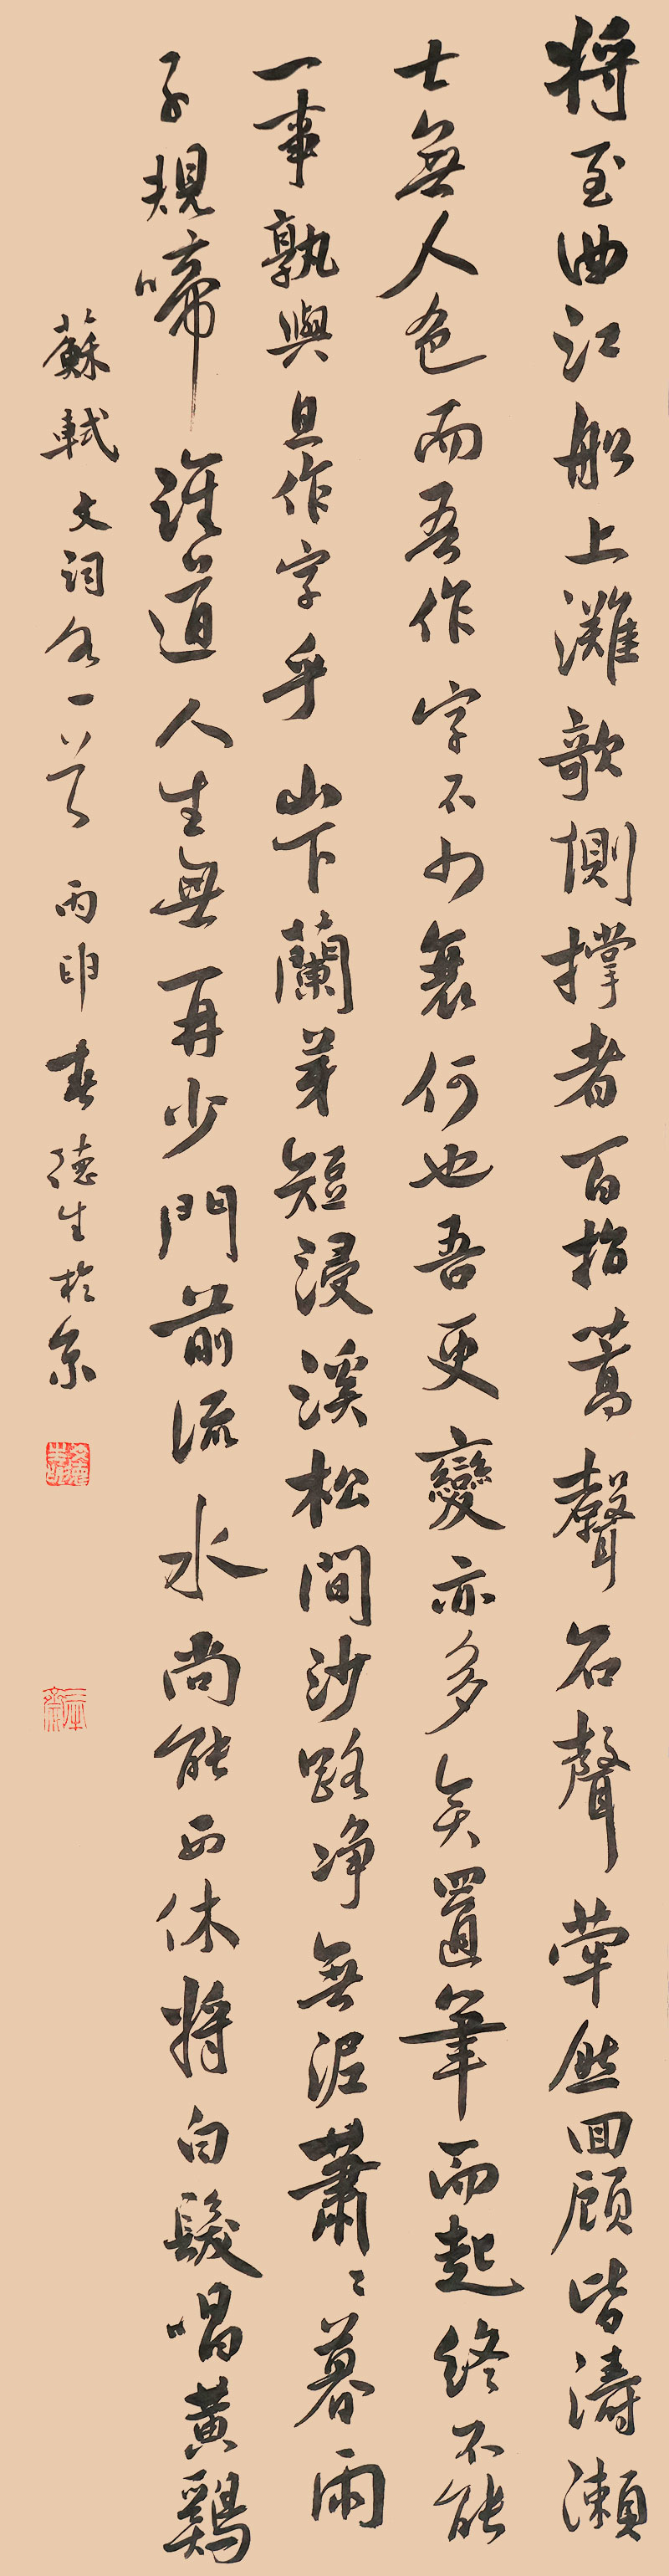 將至曲江船上灘歌側撐者百指篙聲石聲犖然回顧皆濤瀨
士無人色而吾作字不少衰何也吾更變亦多矣置筆而起終不能
一事孰與且作字乎山下蘭芽短浸溪松間沙路净無泥蕭〻暮雨
子規啼誰道人生無再少門前流水尚能西休將白髮唱黃鷄
蘇軾文詞各一首丙申春德生於京